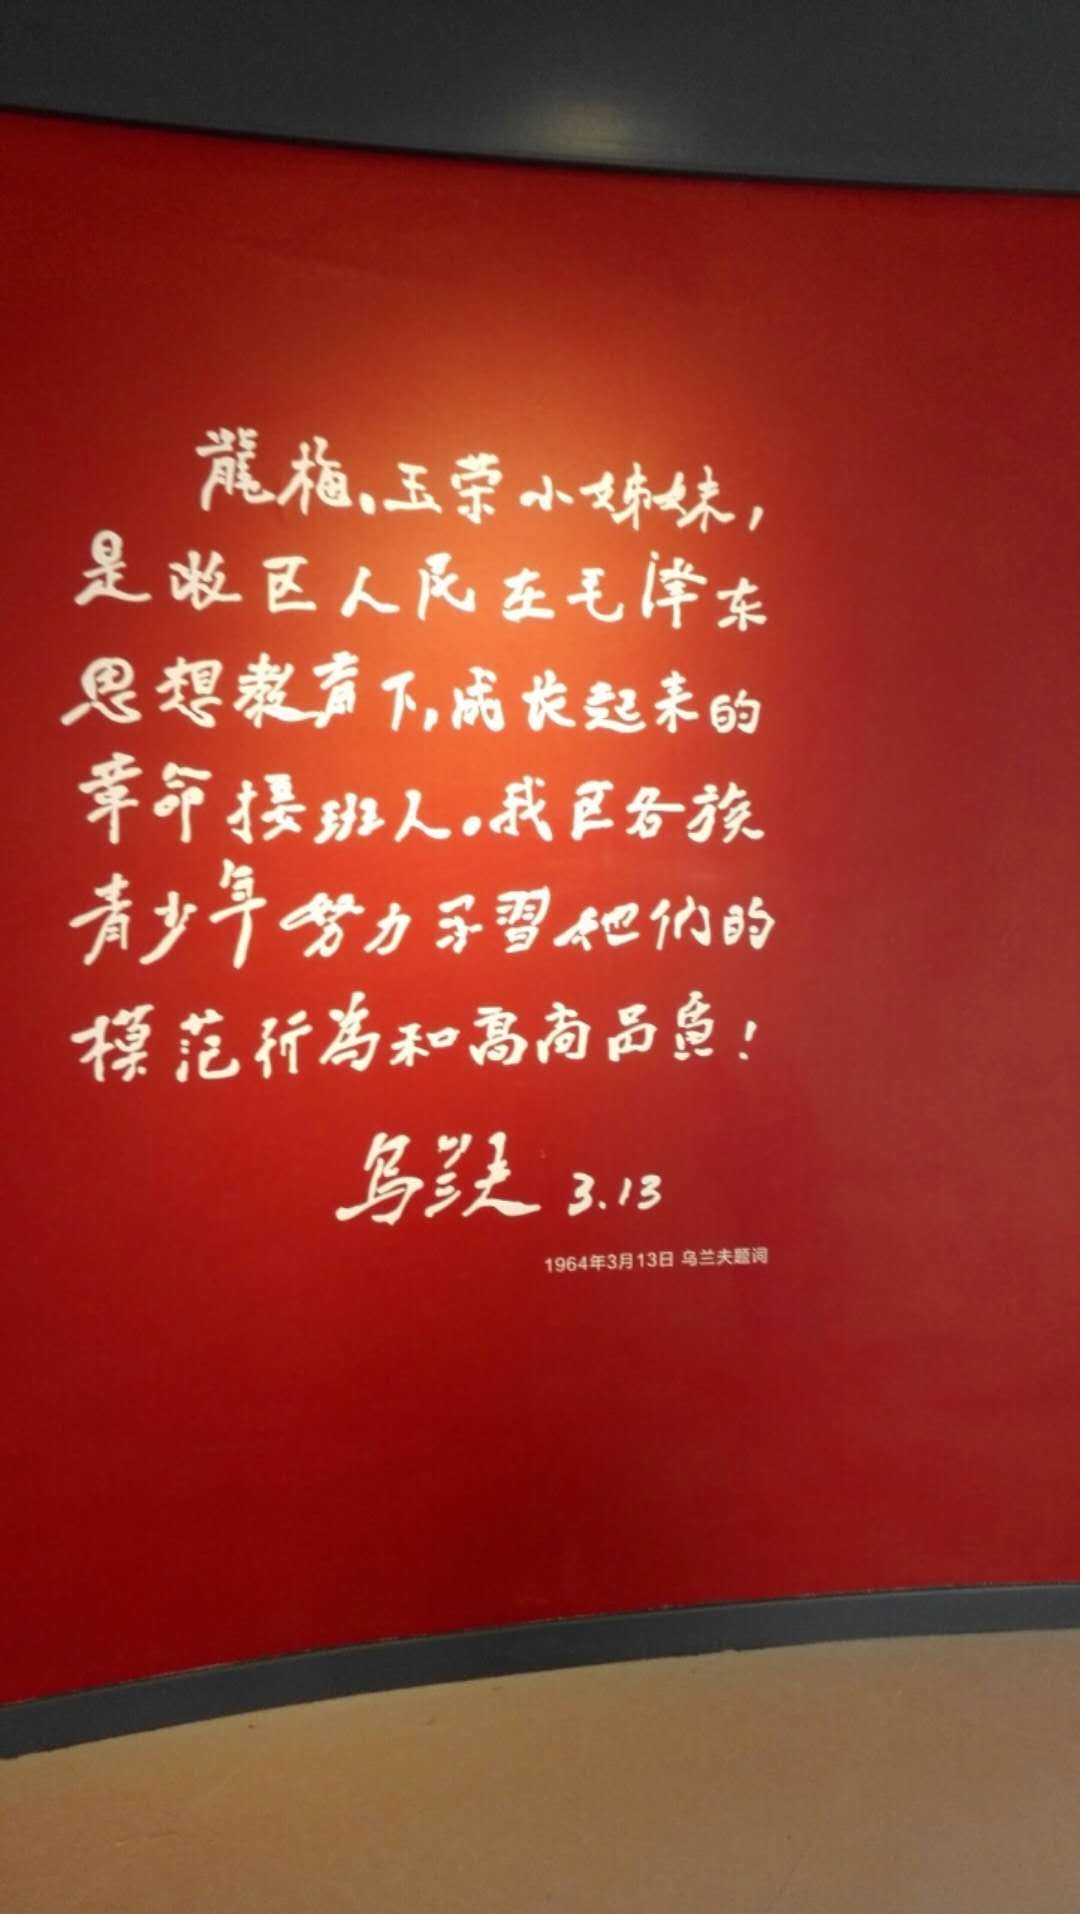 龍梅、玉荣小姊妹，
是牧区人民在毛泽东
思想教育下，成长起来的
革命接班人。我区各族
青少年努力学習他们的
模范行為和高尚品质！
乌兰夫 3.13
1964年3月13日 乌兰夫题词